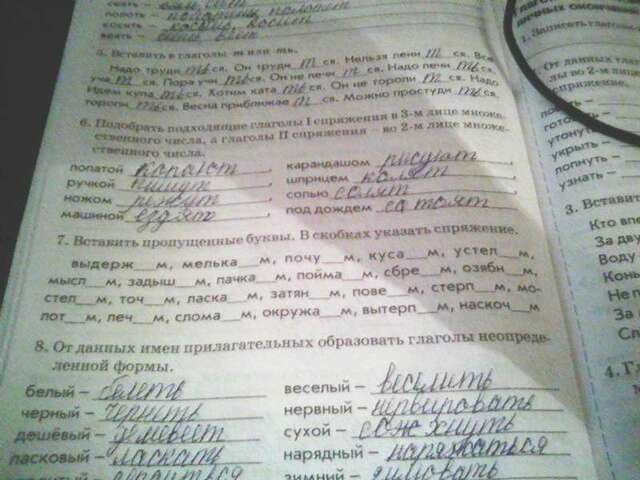 сеять –
полоть – полотишь полотят
косить – косишь косит
веять –
5. Вставить в глаголы т или ть.
Надо труди ть ся. Он труди т ся. Нельзя лени т ся. Все
уча т ся. Пора учи ть ся. Он не лечи т ся. Надо лечи ть ся.
Идем купа ть ся. Хотим ката ть ся. Он не торопи т ся. Надо
торопи ть ся. Весна приближае т ся. Можно простуди ть ся.
6. Подобрать подходящие глаголы I спряжения в 3-м лице множе-
ственного числа, а глаголы II спряжения – во 2-м лице множе-
ственного числа.
лопатой копают, карандашом рисуют,
ручкой пишут, шприцем колят,
ножом режут, солью солят,
машиной ездят, под дождем стоят
7. Вставить пропущенные буквы. В скобках указать спряжение.
выдерж__м, мелька__м, почу__м, куса__м, устел__м,
мысл__м, задыш__м, пачка__м, пойма__м, сбре__м, озябн__м,
стел__м, точ__м, ласка__м, затян__м, пове__м, стерп__м, мо-
лот__м, леч__м, слома__м, окружа__м, вытерп__м, наскоч__м
8. От данных имен прилагательных образовать глаголы неопреде-
ленной формы.
белый – белеть веселый – веселить
черный – чернить нервный – нервировать
дешёвый – дешевеет сухой –
ласковый – ласкать нарядный – наряжаться
зимний – зимовать
1. Записать глаго
От данных глаго
лы во 2-м лице
спряжение.
утону
укрыть –
лопнуть –
узнать –
3. Вставит
Кто вп
За дву
Воду
Коня
Не п
За
Сл
4. Гл